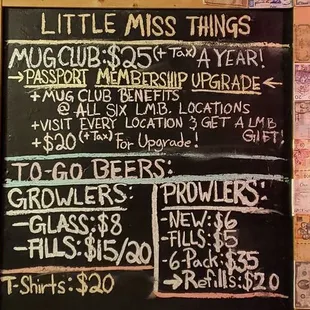 LITTLE MISS THINGS
MUG CLUB: $25 (+ Tax) A YEAR!
→PASSPORT MEMBERSHIP UPGRADE←
+MUG CLUB BENEFITS
@ ALL SIX L.M.B. LOCATIONS
+VISIT EVERY LOCATION & GET A LMB
GIFT!
+$20 (+Tax) For Upgrade!
TO-GO BEERS:
GROWLERS:
-GLASS: $8
-FILLS: $15/20
PROWLERS:
-NEW: $6
-FILLS: $5
-6-Pack: $35
→Refills: $20
T-Shirts: $20